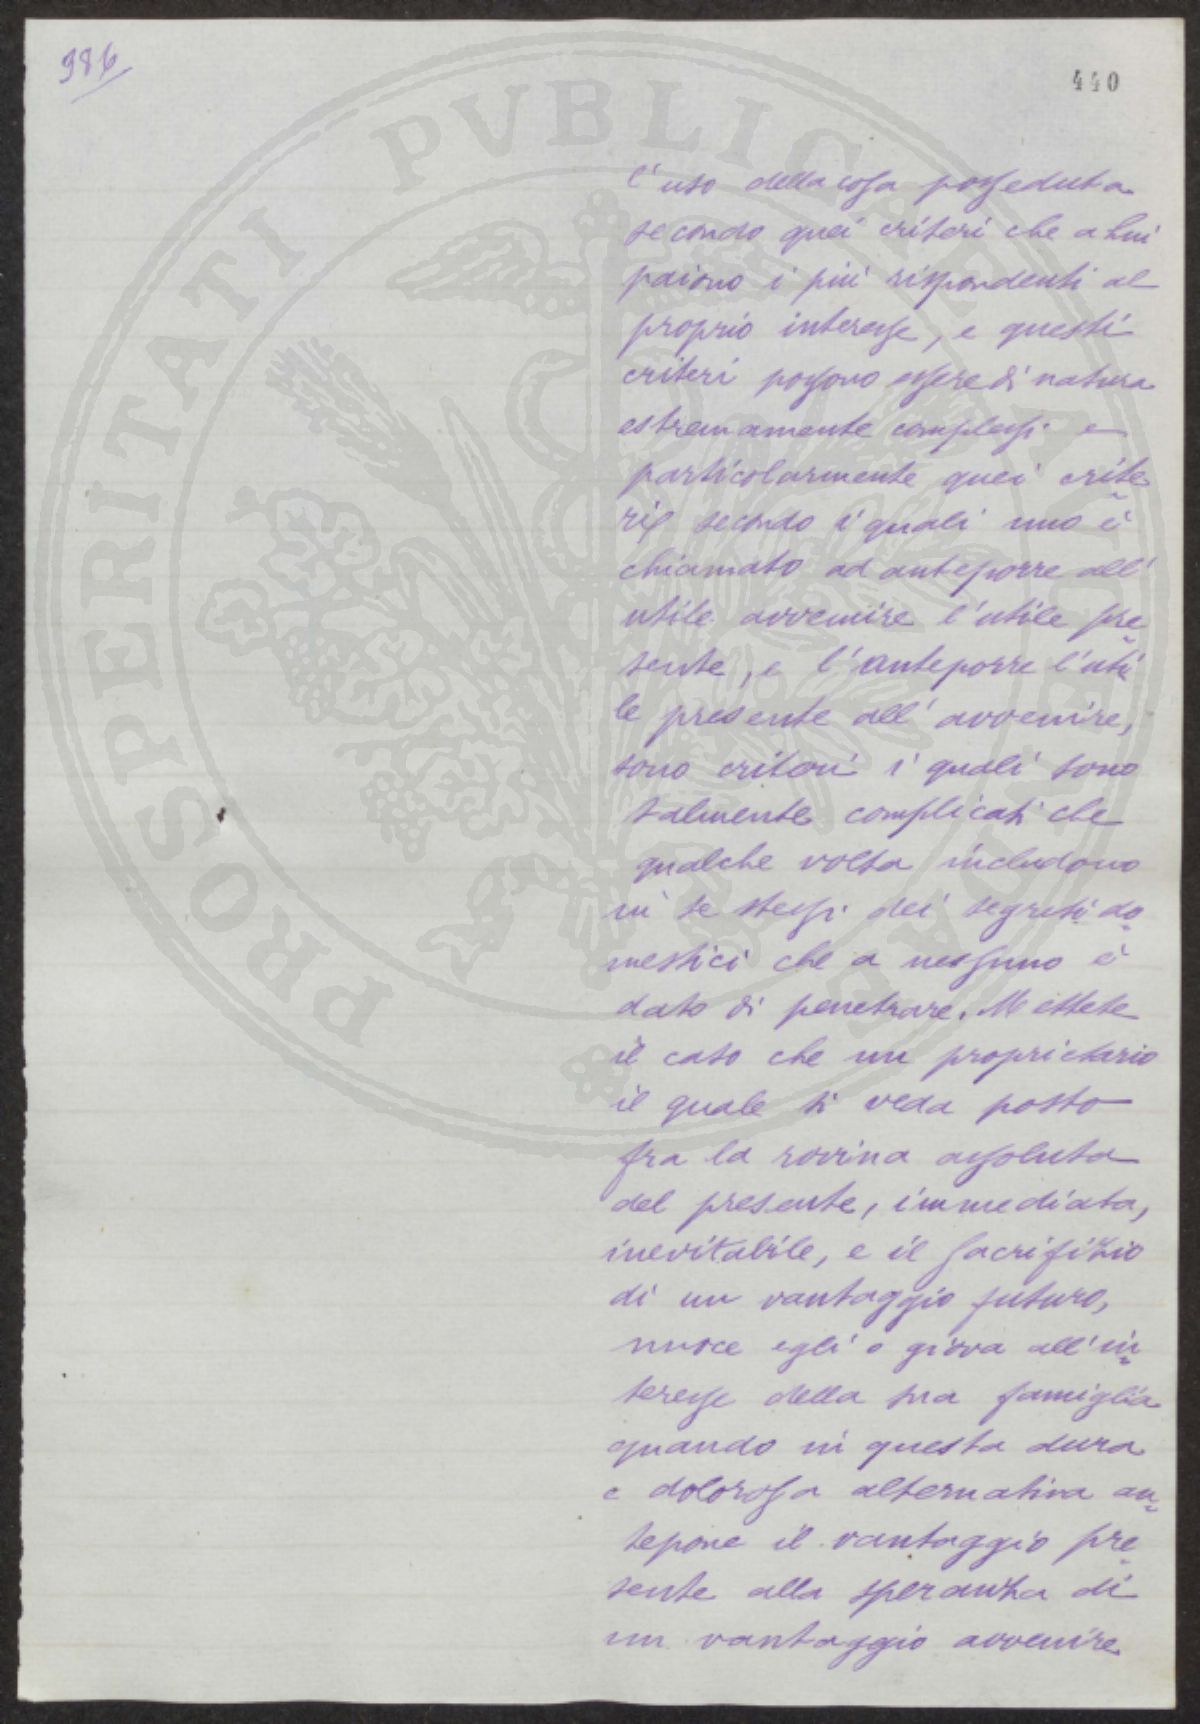 986
440
PROSPERITATI PUBLICAE AUGENDAE
l'uso della cosa posseduta
secondo quei criteri che a lui
paiono i più rispondenti al
proprio interesse, e questi
criteri possono essere di natura
estremamente complessi e
particolarmente quei crite
rii secondo i quali uno è
chiamato ad anteporre all'
utile avvenire l'utile pre
sente, e l'anteporre l'uti
le presente all'avvenire,
sono criteri i quali sono
talmente complicati che
qualche volta includono
in se stessi dei segreti do
mestici che a nessuno è
dato di penetrare. Mettete
il caso che un proprietario
il quale si veda posto
fra la rovina assoluta
del presente, immediata,
inevitabile, e il sacrifizio
di un vantaggio futuro,
nuoce egli o giova all'in
teresse della sua famiglia
quando in questa dura
e dolorosa alternativa an
tepone il vantaggio pre
sente alla speranza di
un vantaggio avvenire